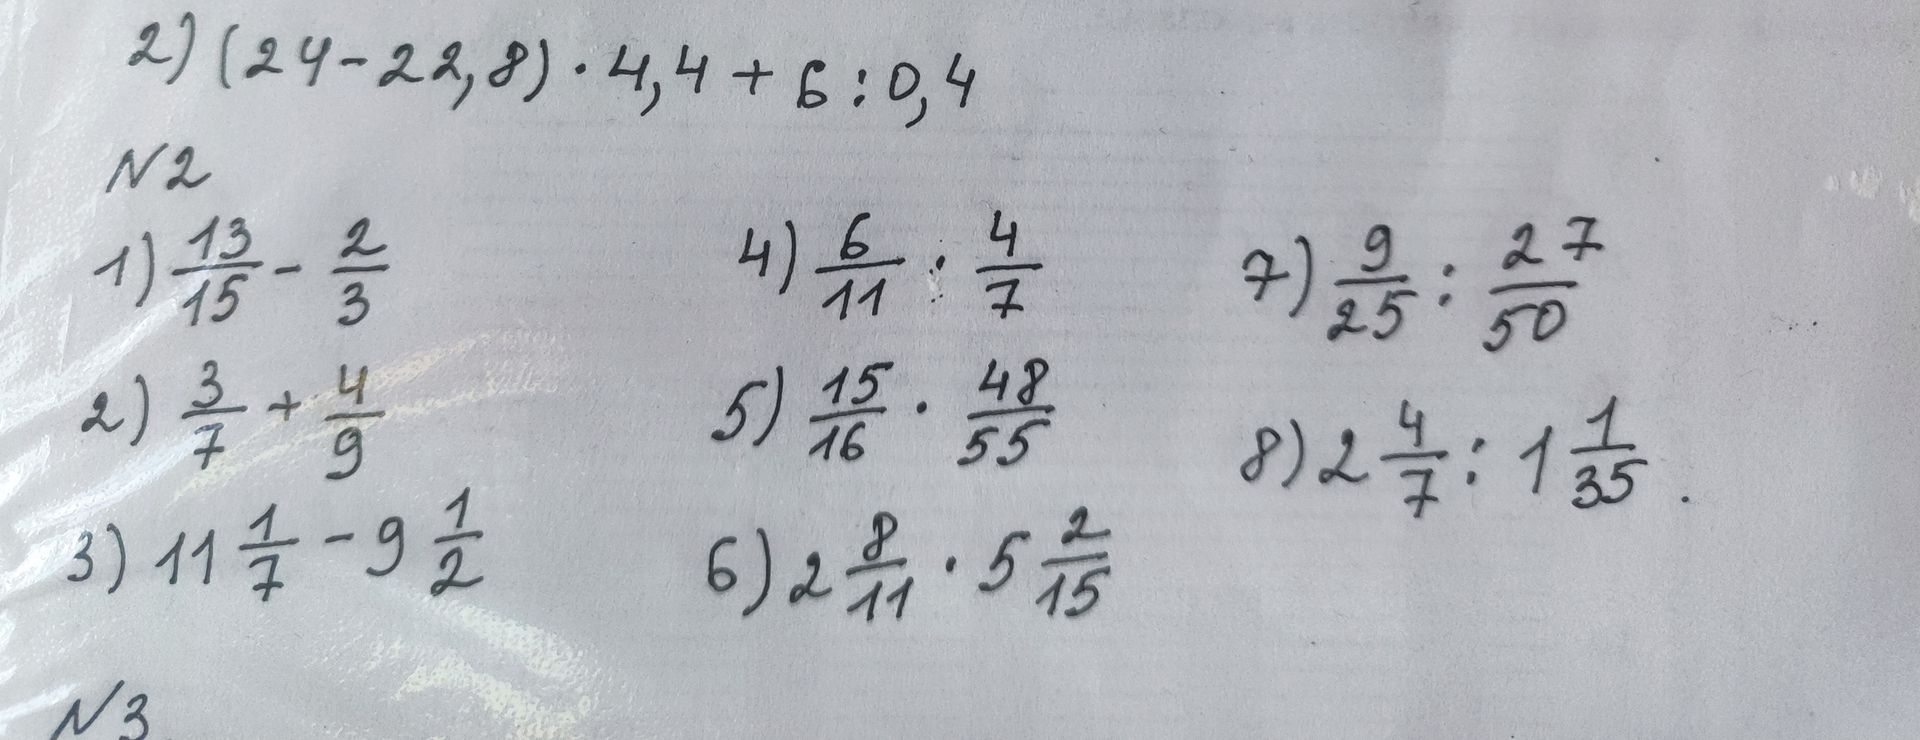 2) (24-22,8)·4,4+6:0,4
N2
1) 13/15 - 2/3
2) 3/7 + 4/9
3) 11 1/7 - 9 1/2
4) 6/11 · 4/7
5) 15/16 · 48/55
6) 2 8/11 · 5 2/15
7) 9/25 : 27/50
8) 2 4/7 : 1 1/35.
N3